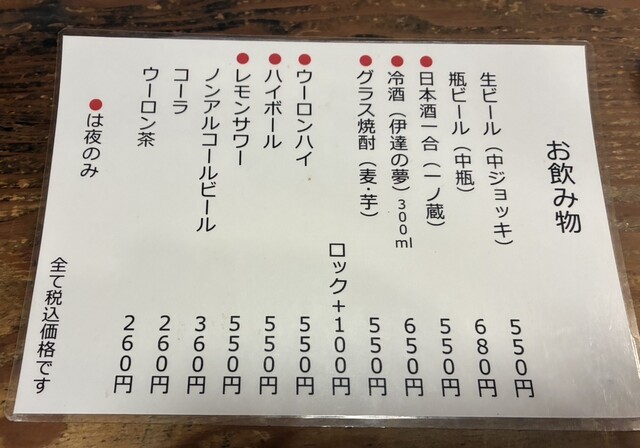 お飲み物
生ビール（中ジョッキ） 550円
瓶ビール（中瓶） 680円
●日本酒一合（一ノ蔵） 550円
●冷酒（伊達の夢）300ml 650円
●グラス焼酎（麦・芋） 550円
ロック＋100円
●ウーロンハイ 550円
●ハイボール 550円
●レモンサワー 550円
ノンアルコールビール 360円
コーラ 260円
ウーロン茶 260円
●は夜のみ
全て税込価格です